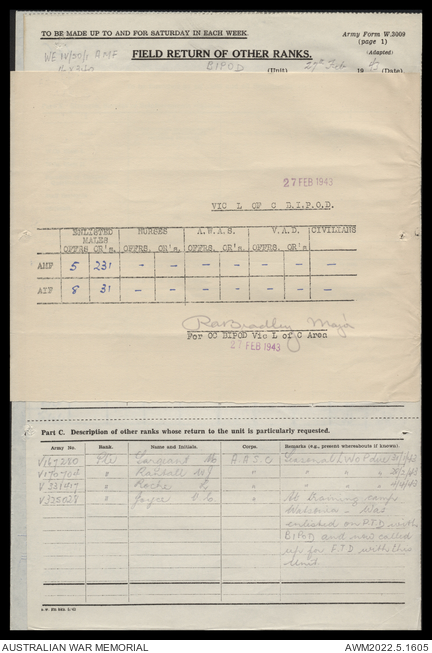 TO BE MADE UP TO AND FOR SATURDAY IN EACH WEEK.
Army Form W.3009
(page 1)
(Adapted)
FIELD RETURN OF OTHER RANKS.
WE IV/50/1 AMF
BIPOD (Unit) 27th Feb 1943 (Date)
27 FEB 1943
VIC L OF C B.I.P.O.D.
ENLISTED MALES NURSES A.W.A.S. V.A.D. CIVILIANS
OFFRS OR's. OFFRS. OR's. OFFRS. OR's. OFFRS. OR's
AMF 5 231 - - - - - - -
AIF 8 31 - - - - - - -
RABradley Maja
For OC BIPOD Vic L of C Area
27 FEB 1943
Part C. Description of other ranks whose return to the unit is particularly requested.
Army No. Rank. Name and Initials. Corps. Remarks (e.g., present whereabouts if known).
V167280 Pte Sargeant M AASC
V170704 " Randall W J " " "
" Roche " " "
V335028 " Joyce At training camp
Watsonia - Was
enlisted on P.T.D with
BIPOD and now called
up for F.T.D with this
Unit
AUSTRALIAN WAR MEMORIAL
AWM2022.5.1605